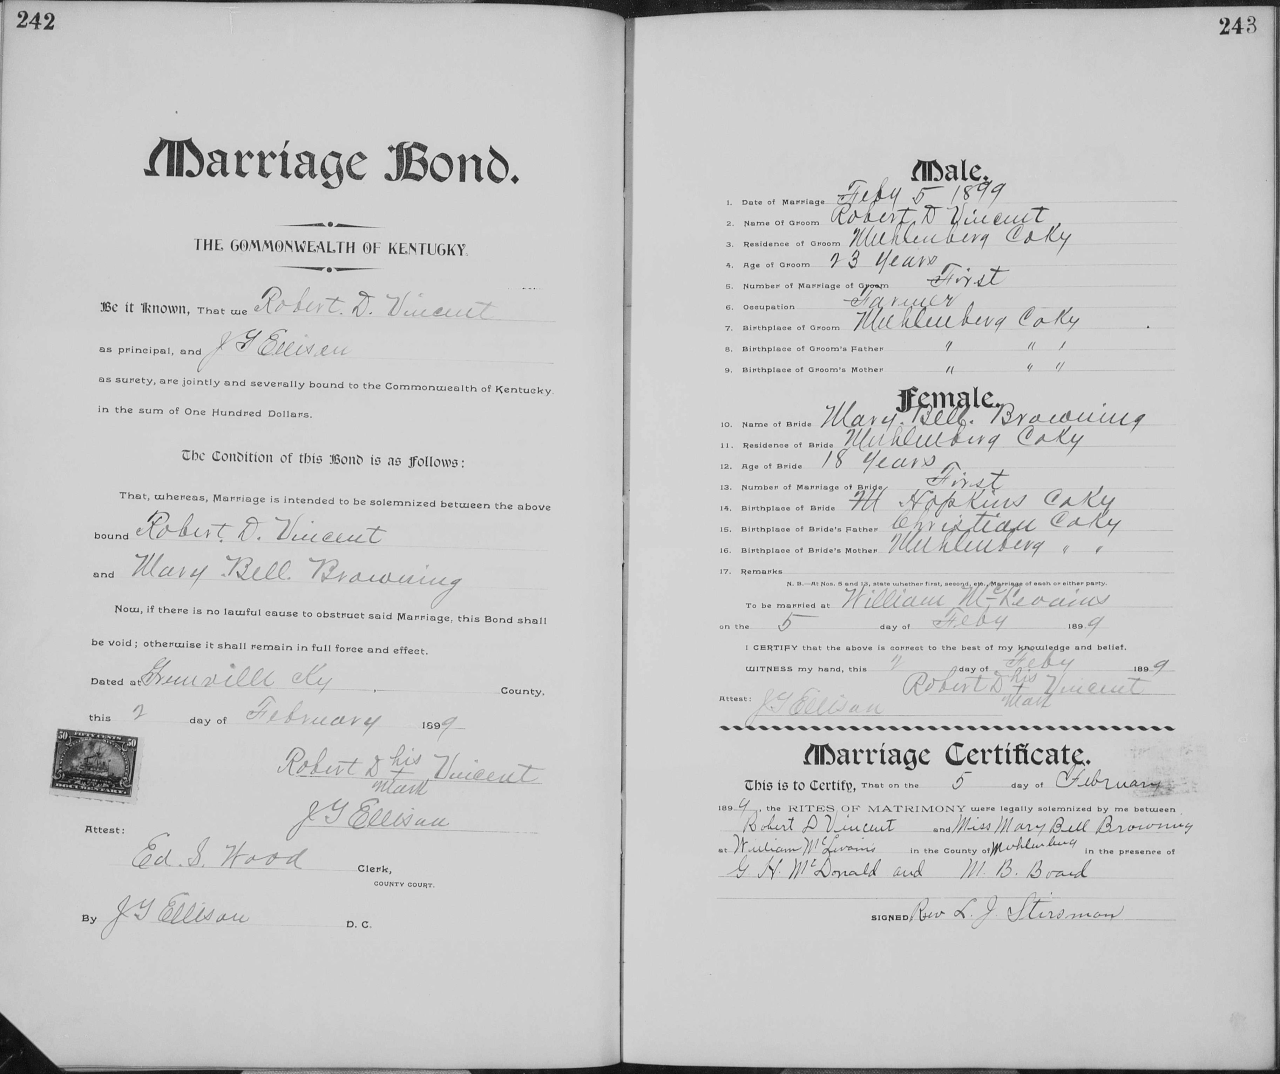 242
Marriage Bond.
THE COMMONWEALTH OF KENTUCKY.
Be it Known, That we Robert. D. Vincent
as principal, and J G Ellison
as surety, are jointly and severally bound to the Commonwealth of Kentucky
in the sum of One Hundred Dollars.
The Condition of this Bond is as follows:
That, whereas, Marriage is intended to be solemnized between the above
bound Robert. D. Vincent
and Mary. Bell. Browning
Now, if there is no lawful cause to obstruct said Marriage, this Bond shall
be void; otherwise it shall remain in full force and effect.
Dated at Greenville Ky County,
this 2 day of February 1899
Robert D his Vincent
mark
J G Ellison
FIFTY CENTS
50 50
DOCUMENTARY
Attest:
Ed. S. Wood Clerk,
COUNTY COURT.
By J G Ellison D. C.
243
Male.
1. Date of Marriage Feby 5 1899
2. Name Of Groom Robert. D Vincent
3. Residence of Groom Muhlenberg Co Ky
4. Age of Groom 23 Years
5. Number of Marriage of Groom First
6. Occupation Farmer
7. Birthplace of Groom Muhlenberg Co Ky
8. Birthplace of Groom's Father " " "
9. Birthplace of Groom's Mother " " "
Female.
10. Name of Bride Mary. Bell. Browning
11. Residence of Bride Muhlenberg Co Ky
12. Age of Bride 18 Years
13. Number of Marriage of Bride First
14. Birthplace of Bride M Hopkins Co Ky
15. Birthplace of Bride's Father Christian Co Ky
16. Birthplace of Bride's Mother Muhlenberg " "
17. Remarks
N. B.—At Nos. 5 and 13, state whether first, second, etc., Marriage of each or either party.
To be married at William McLevains
on the 5 day of Feby 1899
I CERTIFY that the above is correct to the best of my knowledge and belief.
WITNESS my hand, this 2 day of Feby 1899
Robert D his Vincent
mark
Attest: J G Ellison
Marriage Certificate.
This is to Certify, That on the 5 day of February
1899, the RITES OF MATRIMONY were legally solemnized by me between
Robert D Vincent and Miss Mary Bell Browning
at William McLivains in the County of Muhlenburg in the presence of
G H. McDonald and M. B. Board
SIGNED Rev L. J. Stirsman